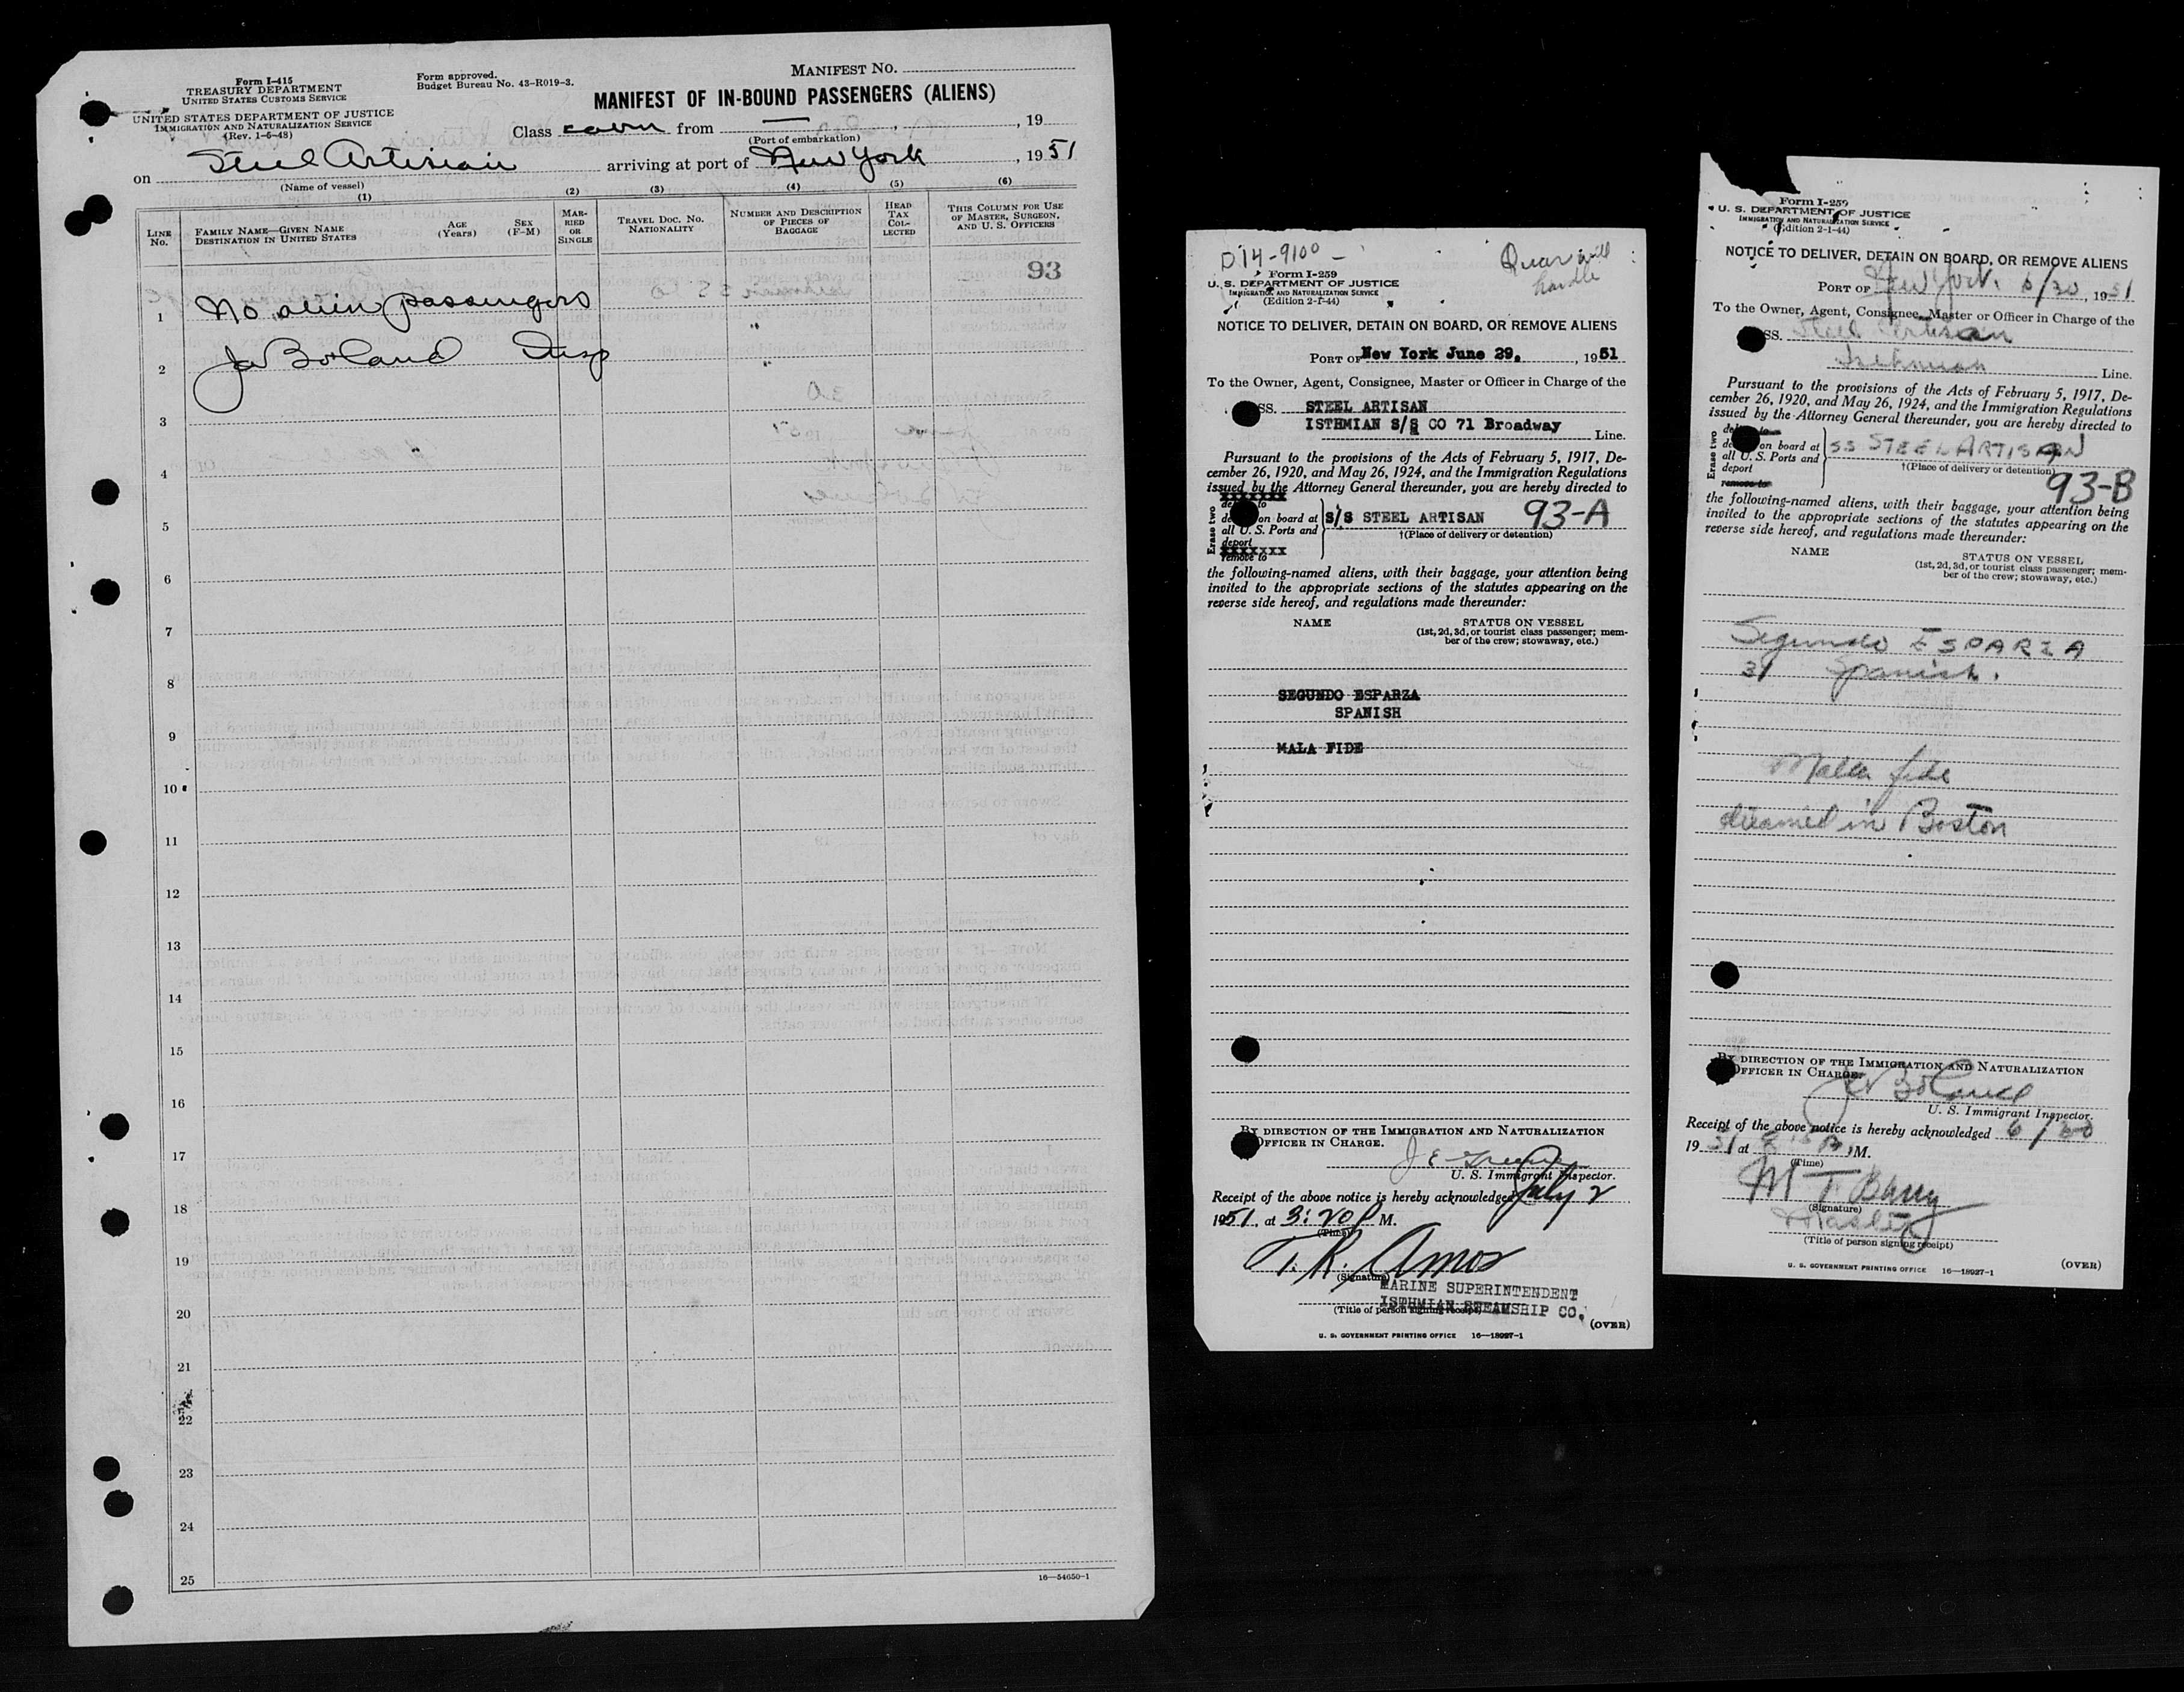 Form I-415
TREASURY DEPARTMENT
UNITED STATES CUSTOMS SERVICE
UNITED STATES DEPARTMENT OF JUSTICE
IMMIGRATION AND NATURALIZATION SERVICE
(Rev. 1-6-48)
Form approved.
Budget Bureau No. 43-R019-3.
MANIFEST NO.
MANIFEST OF IN-BOUND PASSENGERS (ALIENS)
Class from , , 19
(Port of embarkation)
on Steel Artisan arriving at port of New York , 1951
(Name of vessel)
(1) (2) (3) (4) (5) (6)
LINE No.
FAMILY NAME—GIVEN NAME
DESTINATION IN UNITED STATES
AGE (Years)
SEX (F-M)
MARRIED OR SINGLE
TRAVEL DOC. NO.
NATIONALITY
NUMBER AND DESCRIPTION OF PIECES OF BAGGAGE
HEAD TAX COLLECTED
THIS COLUMN FOR USE OF MASTER, SURGEON, AND U. S. OFFICERS
93
1 No alien passengers
2 Borland Insp
3
4
5
6
7
8
9
10
11
12
13
14
15
16
17
18
19
20
21
22
23
24
25
16—54650-1
D14-9100 —
Quar will
handle
Form I-259
U. S. DEPARTMENT OF JUSTICE
IMMIGRATION AND NATURALIZATION SERVICE
(Edition 2-1-44)
NOTICE TO DELIVER, DETAIN ON BOARD, OR REMOVE ALIENS
PORT OF New York June 29, , 1951
To the Owner, Agent, Consignee, Master or Officer in Charge of the
SS. STEEL ARTISAN
ISTHMIAN S/S CO 71 Broadway Line.
Pursuant to the provisions of the Acts of February 5, 1917, De-
cember 26, 1920, and May 26, 1924, and the Immigration Regulations
issued by the Attorney General thereunder, you are hereby directed to
Erase two
on board at
all U. S. Ports and
deport
remove to
S/S STEEL ARTISAN 93-A
†(Place of delivery or detention)
the following-named aliens, with their baggage, your attention being
invited to the appropriate sections of the statutes appearing on the
reverse side hereof, and regulations made thereunder:
NAME STATUS ON VESSEL
(1st, 2d, 3d, or tourist class passenger; mem-
ber of the crew; stowaway, etc.)
SEGUNDO ESPARZA
SPANISH
MALA FIDE
BY DIRECTION OF THE IMMIGRATION AND NATURALIZATION
OFFICER IN CHARGE.
J E
U. S. Immigrant Inspector.
Receipt of the above notice is hereby acknowledged July 2
1951, at 3:20 P M.
(Time)
T. R. Amos
(Signature)
MARINE SUPERINTENDENT
ISTHMIAN STEAMSHIP CO.
(Title of person signing receipt)
(OVER)
U. S. GOVERNMENT PRINTING OFFICE 16—18927-1
Form I-259
U. S. DEPARTMENT OF JUSTICE
IMMIGRATION AND NATURALIZATION SERVICE
(Edition 2-1-44)
NOTICE TO DELIVER, DETAIN ON BOARD, OR REMOVE ALIENS
PORT OF New York. 6/30, 1951
To the Owner, Agent, Consignee, Master or Officer in Charge of the
SS. Steel Artisan
Isthmian Line.
Pursuant to the provisions of the Acts of February 5, 1917, De-
cember 26, 1920, and May 26, 1924, and the Immigration Regulations
issued by the Attorney General thereunder, you are hereby directed to
Erase two
on board at
all U. S. Ports and
deport
remove to
SS STEEL ARTISAN
†(Place of delivery or detention)
93-B
the following-named aliens, with their baggage, your attention being
invited to the appropriate sections of the statutes appearing on the
reverse side hereof, and regulations made thereunder:
NAME STATUS ON VESSEL
(1st, 2d, 3d, or tourist class passenger; mem-
ber of the crew; stowaway, etc.)
Segundo ESPARZA
31 Spanish.
Mala fide
in Boston
BY DIRECTION OF THE IMMIGRATION AND NATURALIZATION
OFFICER IN CHARGE.
Borland
U. S. Immigrant Inspector.
Receipt of the above notice is hereby acknowledged 6/30
1951 at A.M.
(Time)
M T Barry
(Signature)
Master
(Title of person signing receipt)
U. S. GOVERNMENT PRINTING OFFICE 16—18927-1
(OVER)